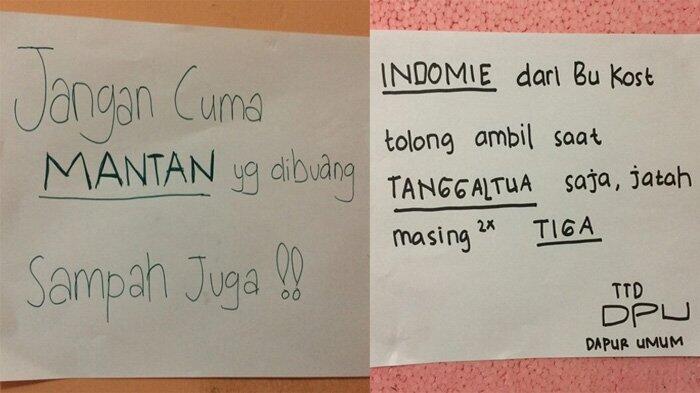 Jangan Cuma
MANTAN yg dibuang
Sampah Juga !!
INDOMIE dari Bu Kost
tolong ambil saat
TANGGALTUA saja, jatah
masing 2x TIGA
TTD
DPU
DAPUR UMUM